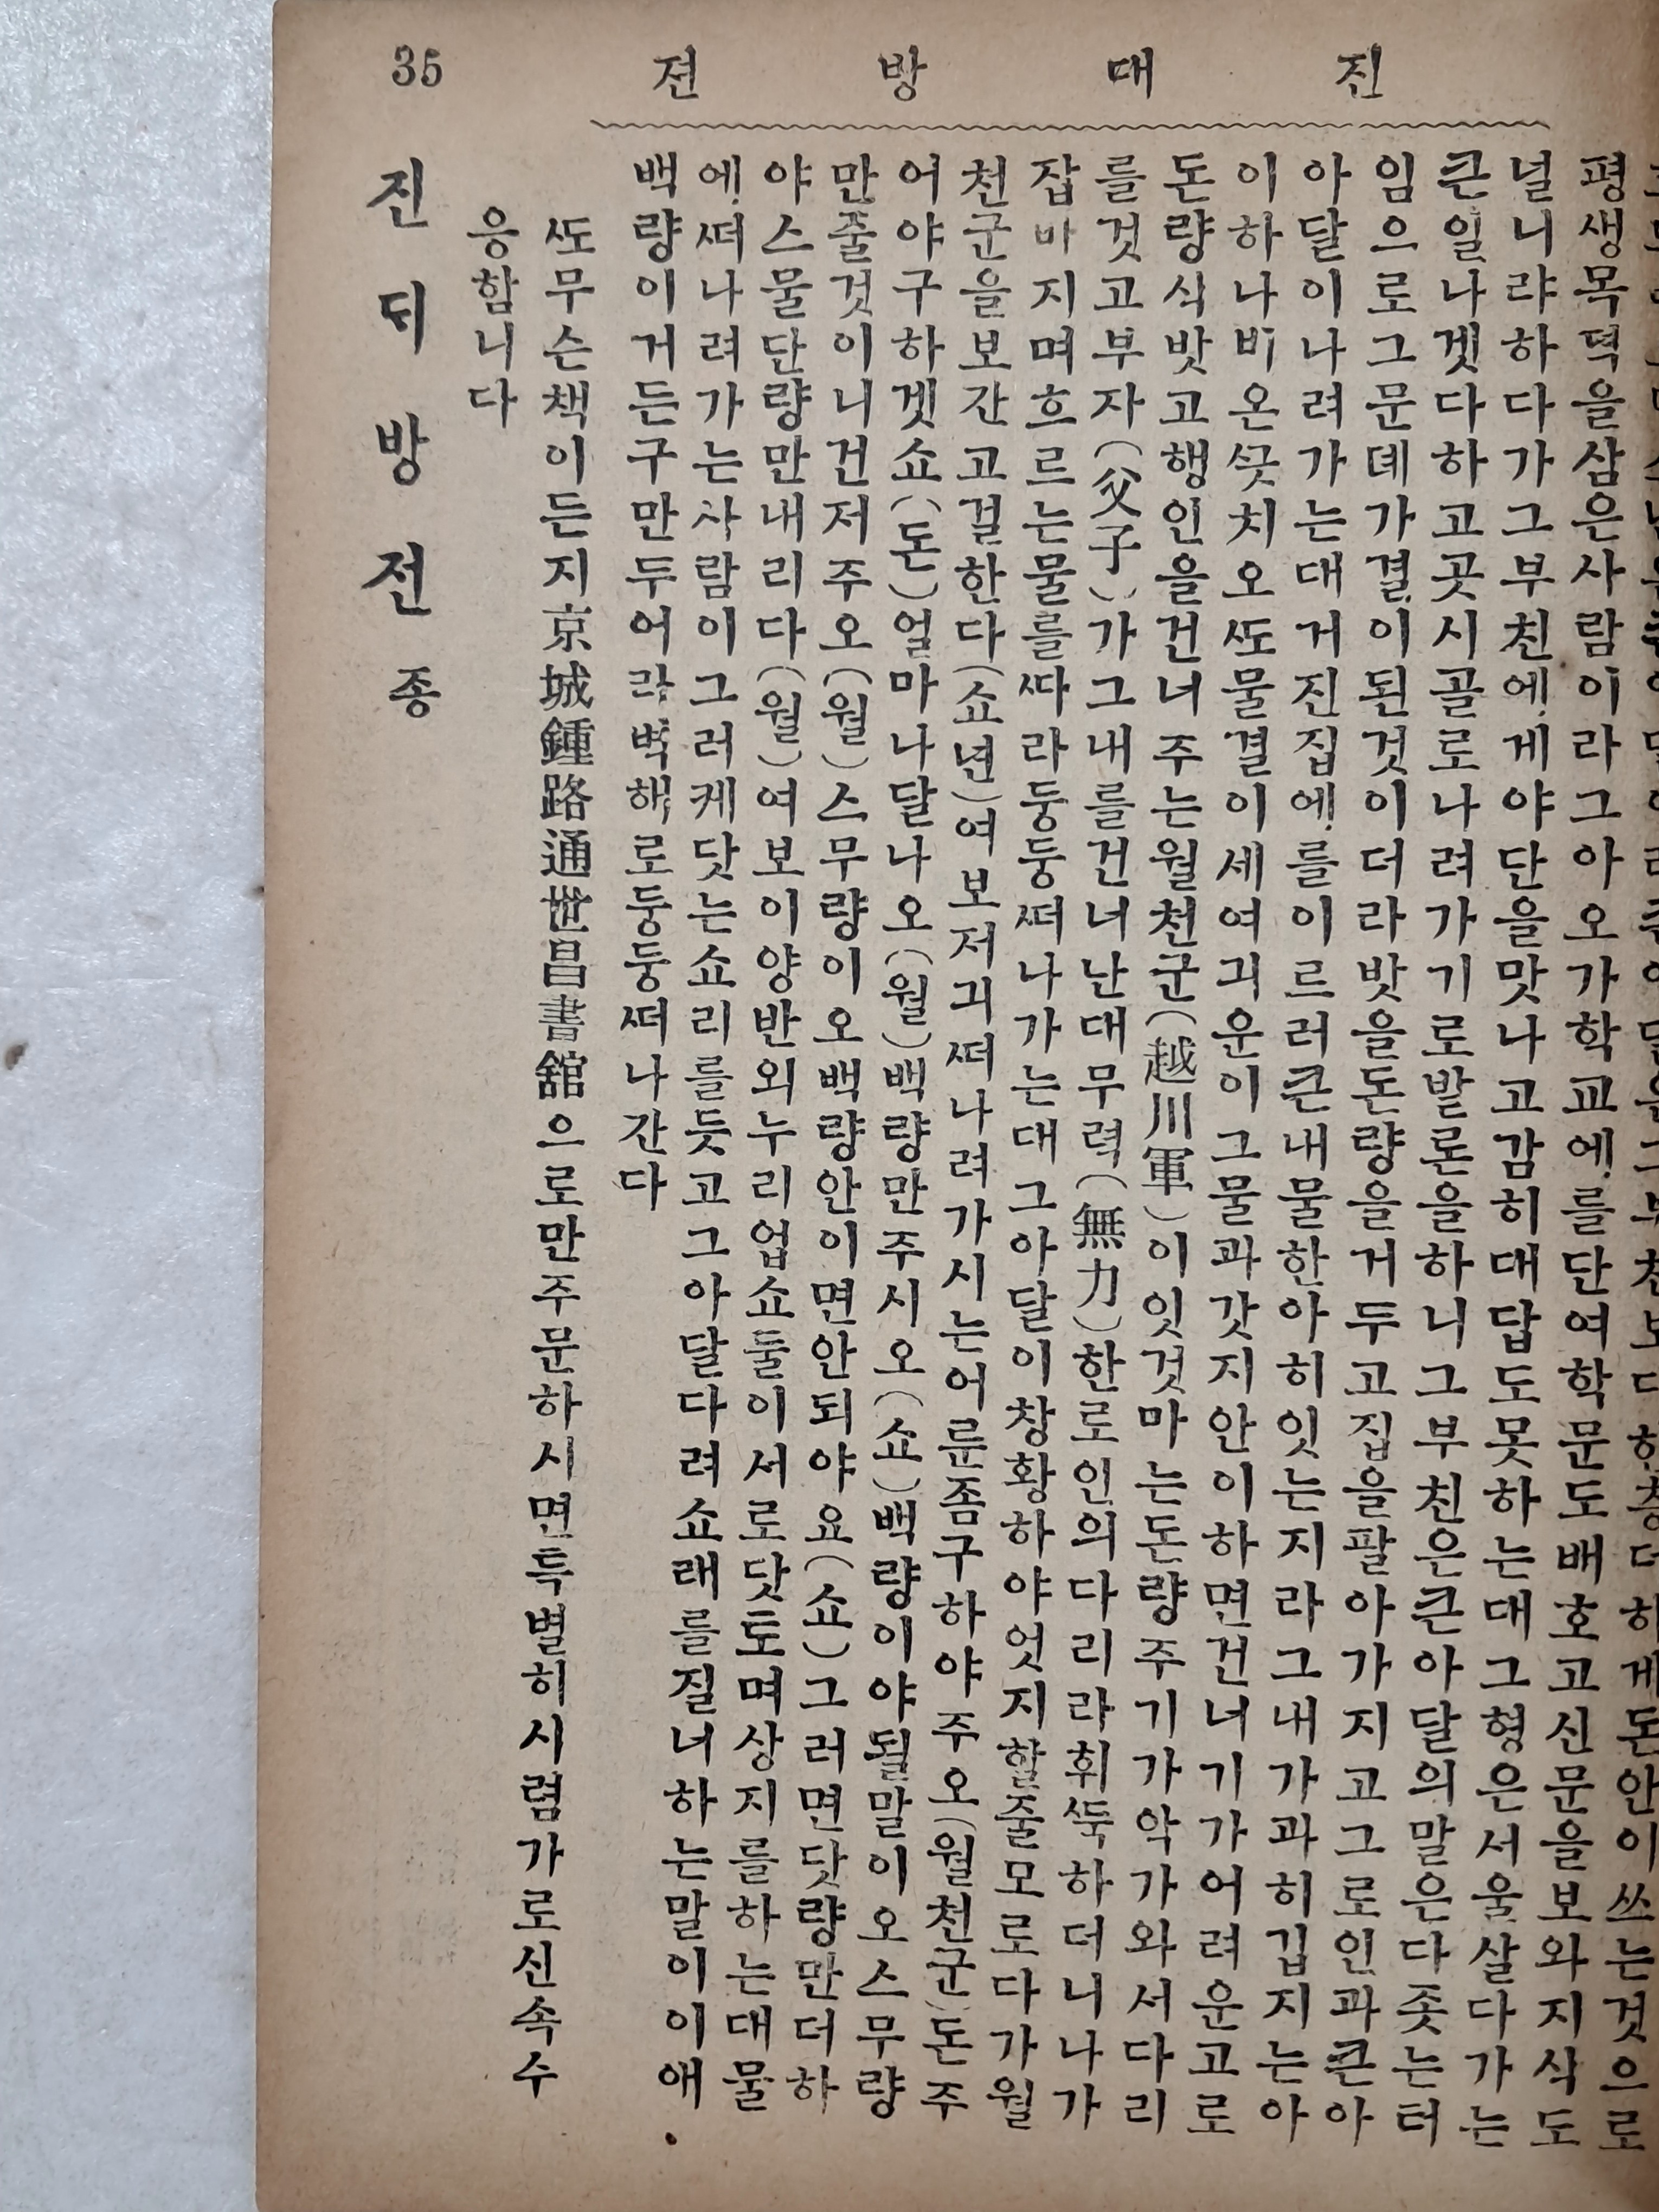 진대방젼
35
보다한층더하게돈안이쓰는것으로
평생목뎍을삼은사람이라그아오가학교에를단여학문도배호고신문을보와지식도
널니랴하다가그부친에게야단을맛나고감히대답도못하는대그형은서울살다가는
큰일나겟다하고곳시골로나려가기로발론을하니그부친은큰아달의말은다좃는터
임으로그문뎨가결이된것이더라밧을돈량을거두고집을팔아가지고그로인과큰아
아달이나려가는대거진집에를이르러큰내물한아히잇는지라그내가과히깁지는아
이하나비온ᄭᅳᆺ치오ᄯᅩ물결이세여긔운이그물과갓지안이하면건너기가어려운고로
돈량식밧고행인을건너주는월천군(越川軍)이잇것마는돈량주기가악가와서다리
를것고부자(父子)가그내를건너난대무력(無力)한로인의다리라휘ᄯᅮᆨ하더니나가
잡바지며흐르는물를ᄯᅡ라둥둥ᄯᅥ나가는대그아달이창황하야엇지할줄모로다가월
천군을보간고결한다(쇼년)여보저긔ᄯᅥ나려가시는어룬좀구하야주오(월천군)돈주
어야구하겟쇼(돈)얼마나달나오(월)백량만주시오(쇼)백량이야될말이오스무량
만줄것이니건저주오(월)스무량이오백량안이면안되야요(쇼)그러면닷량만더하
야스물단량만내리다(월)여보이양반외누리업쇼둘이서로닷토며상지를하는대물
에ᄯᅥ나려가는사람이그러케닷는쇼리를듯고그아달다려쇼래를질너하는말이이애
백량이거든구만두어라벽해로둥둥ᄯᅥ나간다
ᄯᅩ무슨책이든지京城鍾路通世昌書舘으로만주문하시면특별히시렴가로신속수
응함니다
진ᄃᆡ방전 종